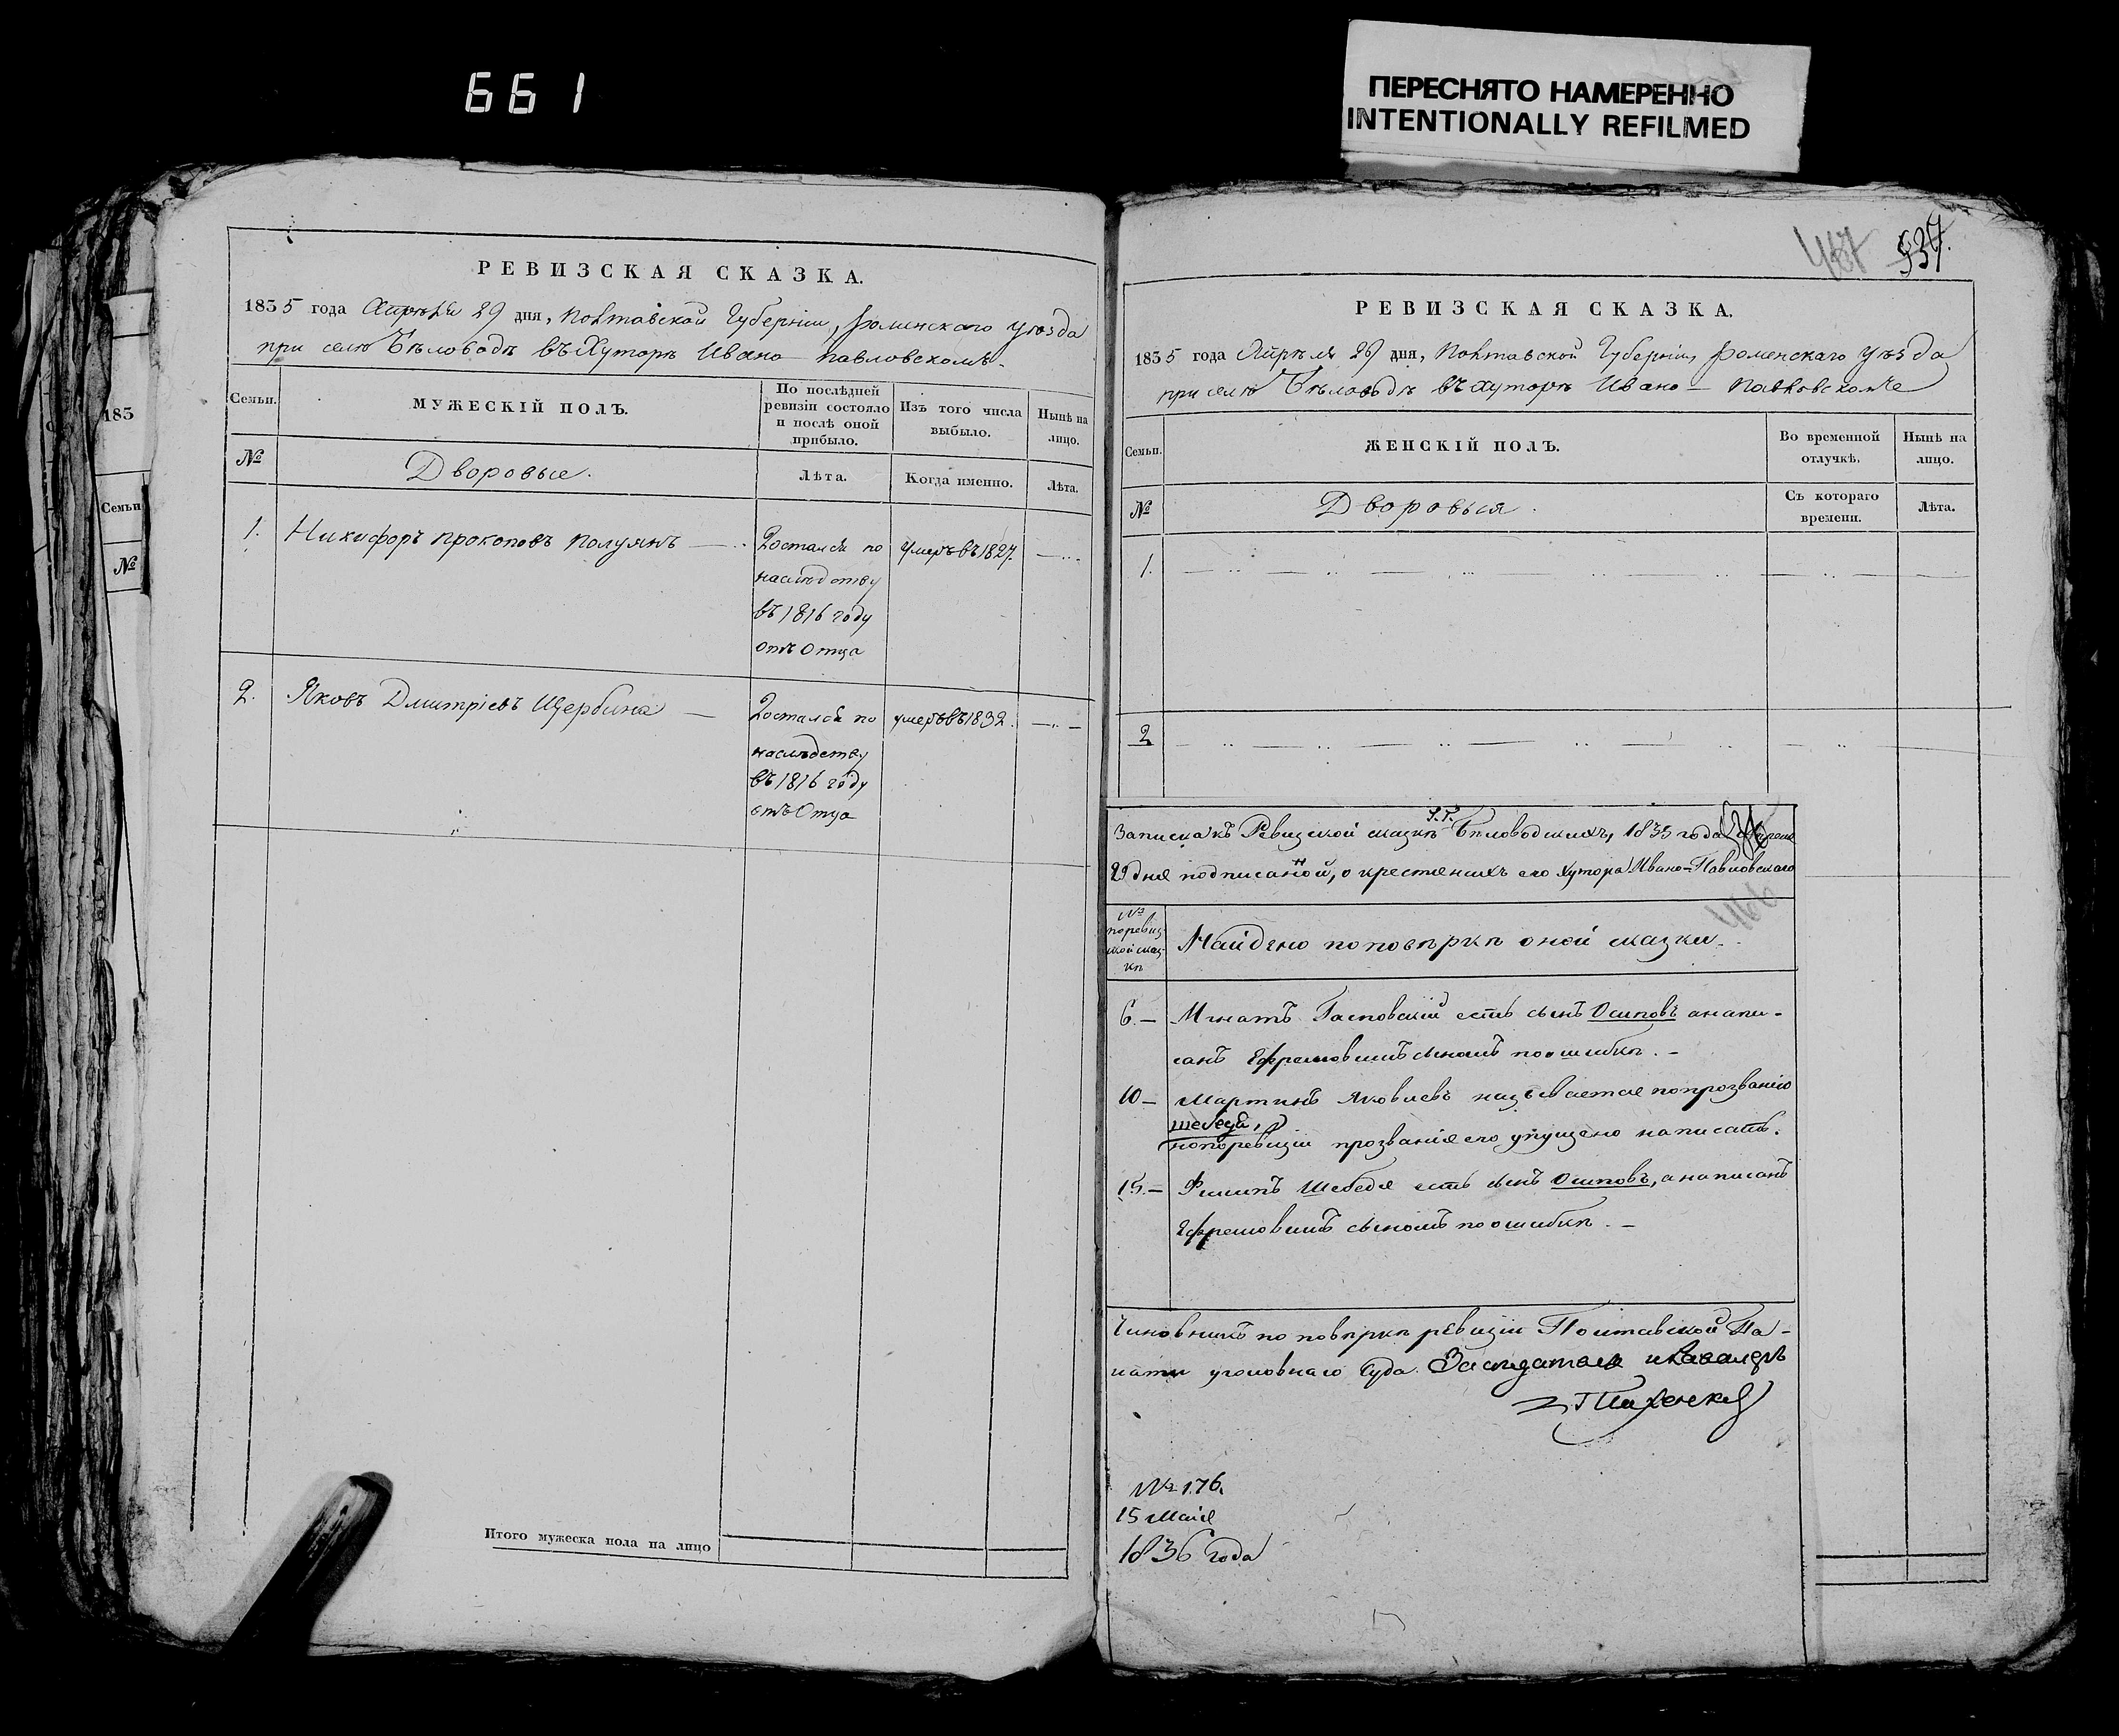 661
ПЕРЕСНЯТО НАМЕРЕННО
INTENTIONALLY REFILMED
РЕВИЗСКАЯ СКАЗКА.
1835 года Апрѣля 29 дня, Полтавской Губерніи, Роменскаго уѣзда
при селѣ Бѣловодѣ въ Хуторѣ Ивано-Павловскомъ.
Семьи.
МУЖЕСКІЙ ПОЛЪ.
По послѣдней ревизіи состояло и послѣ оной прибыло.
Изъ того числа выбыло.
Нынѣ на лицо.
№
Дворовые.
Лѣта.
Когда именно.
Лѣта.
1.
Никифоръ Прокоповъ Полуянъ
Достался по
наслѣдству
въ 1816 году
отъ Отца
умеръ въ 1827.
2.
Яковъ Дмитріевъ Щербина
Достался по
наслѣдству
въ 1816 году
отъ Отца
умеръ въ 1832.
Итого мужеска пола на лицо
183
Семьи
№
467 537.
РЕВИЗСКАЯ СКАЗКА.
1835 года Апрѣля 29 дня, Полтавской Губерніи, Роменскаго уѣзда
при селѣ Бѣловодѣ въ хуторѣ Ивано-Павловскомъ
Семьи.
ЖЕНСКІЙ ПОЛЪ.
Во временной отлучкѣ.
Нынѣ на лицо.
№
Дворовыя.
Съ котораго времени.
Лѣта.
1.
2
Записка къ Ревизской сказкѣ Г.Г. Бѣловодскихъ, 1835 года Апреля
29 дня подписанной, о крестянехъ его Хутора Ивано-Павловскаго
466
№ по ревизской сказкѣ
Найдено по повѣркѣ оной сказки.
6.— Игнатъ есть сынъ Осиповъ а напи-
санъ Ефремовымъ сыномъ по ошибкѣ.—
10— Мартинъ Яковлевъ называется по прозванію
Шебедя,
но по ревизіи прозванія его упущено написать.
15.— Филипъ Шебедя есть сынъ Осиповъ, а написанъ
Ефремовымъ сыномъ по ошибкѣ.—
Чиновникъ по повѣркѣ ревизіи Полтавской Па-
латы уголовнаго Суда Засѣдатель и Кавалеръ
№ 176.
15 Маія
1836 года